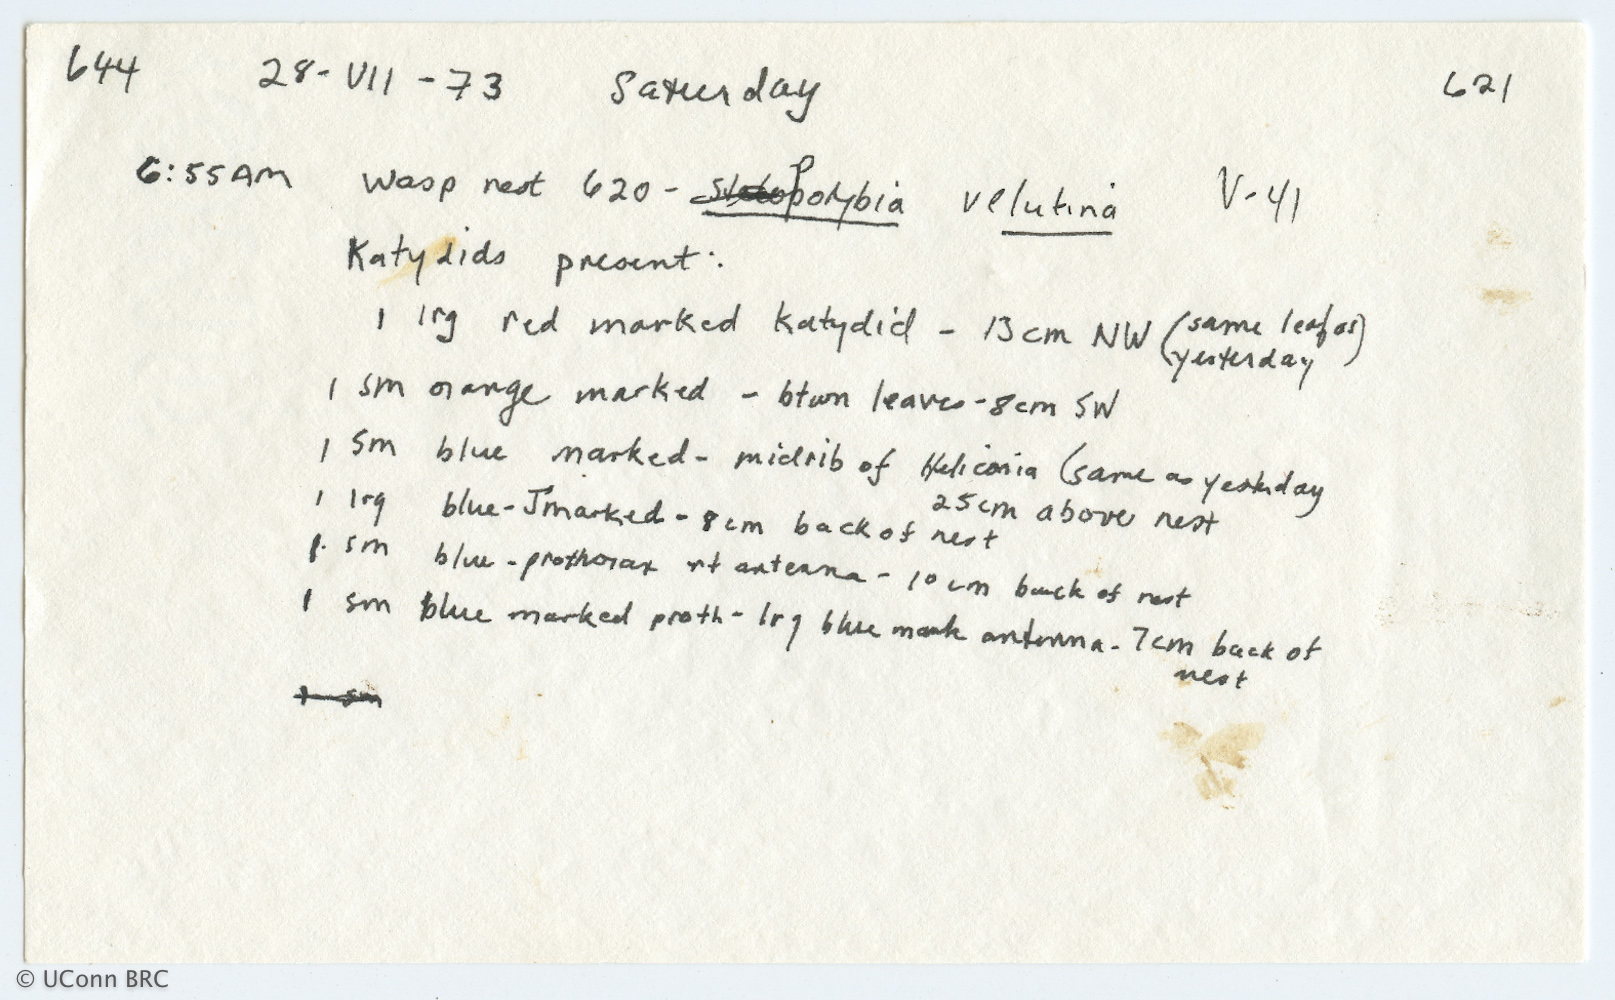 644 28-VII-73 Saturday 621
6:55AM wasp nest 620 - Polybia velutina V-41
Katydids present:
1 lrg red marked katydid - 13cm NW (same leaf as
yesterday)
1 sm orange marked - btwn leaves - 8cm SW
1 sm blue marked - midrib of Heliconia (same as yesterday
25cm above nest
1 lrg blue-J marked - 8cm back of nest
1 sm blue-prothorax rt antenna - 10cm back of nest
1 sm blue marked proth - lrg blue mark antenna - 7cm back of
nest
1 sm
© UConn BRC